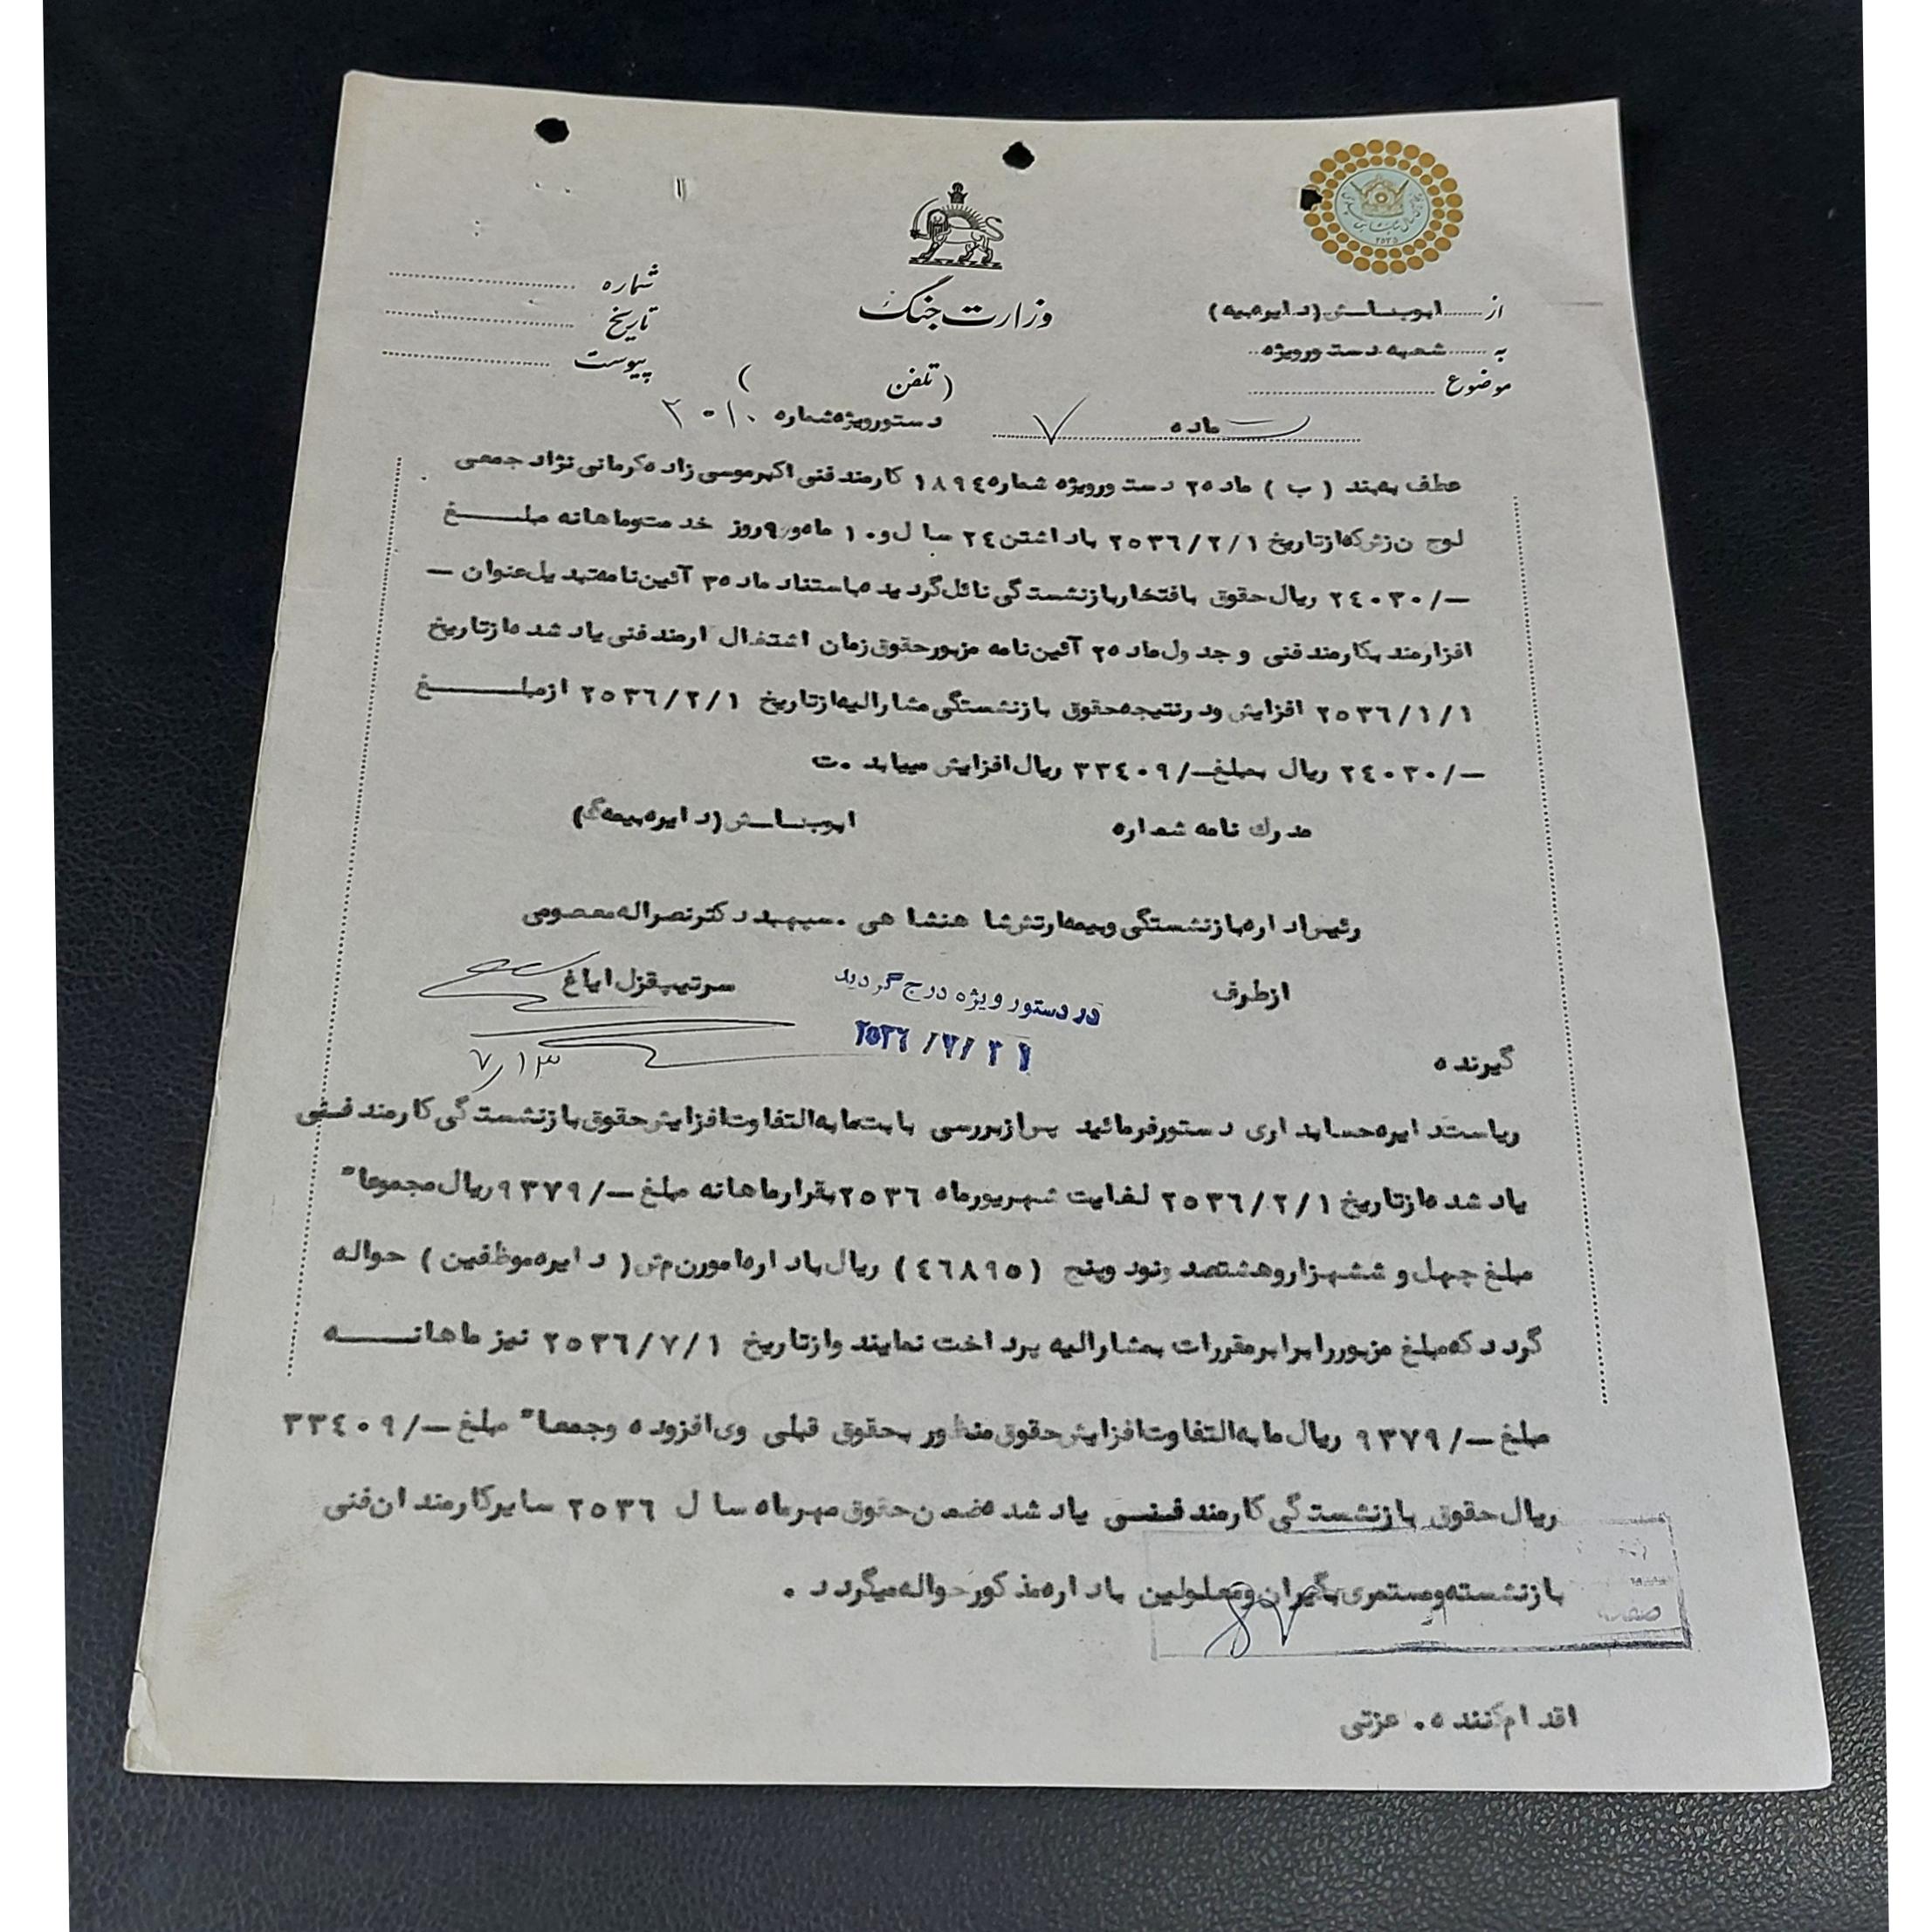 ۲۵۳۵
وزارت جنگ
شماره
تاریخ
پیوست
از ابوبناسش (دایره بیمه)
به شعبه دستورویژه
موضوع
(تلفن )
ماده ۷ دستورویژه شماره ۲۰۱۰
عطف به بند (ب) ماده ۲۵ دستورویژه شماره ۱۸۹۴ کارمند فنی اکبر موسی زاده کرمانی نژاد جمعی
لوج ن ز ش که از تاریخ ۲۵۳۶/۲/۱ با داشتن ۲۴ سال و ۱۰ ماه و ۹ روز خدمت و ماهانه مبلغ
-/۲۴۰۳۰ ریال حقوق بافتخار بازنشستگی نائل گردیده باستناد ماده ۳۵ آئین نامه تبدیل عنوان -
افزارمند بکارمند فنی و جدول ماده ۲۵ آئین نامه مزبور حقوق زمان اشتغال ارمند فنی یاد شده از تاریخ
۲۵۳۶/۱/۱ افزایش و در نتیجه حقوق بازنشستگی مشارالیه از تاریخ ۲۵۳۶/۲/۱ از مبلغ
-/۲۴۰۳۰ ریال بمبلغ -/۳۳۴۰۹ ریال افزایش مییابد .ت
مدرك نامه شماره ابوبناسش (دایره بیمه گ)
رئیس اداره بازنشستگی و بیمه ارتش شاهنشاهی . سپهبد دکتر نصراله معصومی
از طرف سرتیپ قزل ایاغ
در دستور ویژه درج گردید
۲۵۳۶/۷/۲۱
۷/۱۳
گیرنده
ریاست دایره حسابداری دستور فرمائید پس از بررسی بابت مابه التفاوت افزایش حقوق بازنشستگی کارمند فنی
یاد شده از تاریخ ۲۵۳۶/۲/۱ لغایت شهریور ماه ۲۵۳۶ بقرار ماهانه مبلغ -/۹۳۷۹ ریال مجموعا"
مبلغ چهل و ششهزار و هشتصد و نود و پنج (۴۶۸۹۵) ریال باداره امور ن م ش (دایره موظفین) حواله
گردد که مبلغ مزبور را برابر مقررات بمشارالیه پرداخت نمایند و از تاریخ ۲۵۳۶/۷/۱ نیز ماهانه
مبلغ -/۹۳۷۹ ریال مابه التفاوت افزایش حقوق منظور بحقوق قبلی وی افزوده و جمعا" مبلغ -/۳۳۴۰۹
ریال حقوق بازنشستگی کارمند فنی یاد شده ضمن حقوق مهر ماه سال ۲۵۳۶ سایر کارمندان فنی
بازنشسته و مستمری بگیران و معلولین باداره مذکور حواله میگردد .
اقدام کننده . عزتی